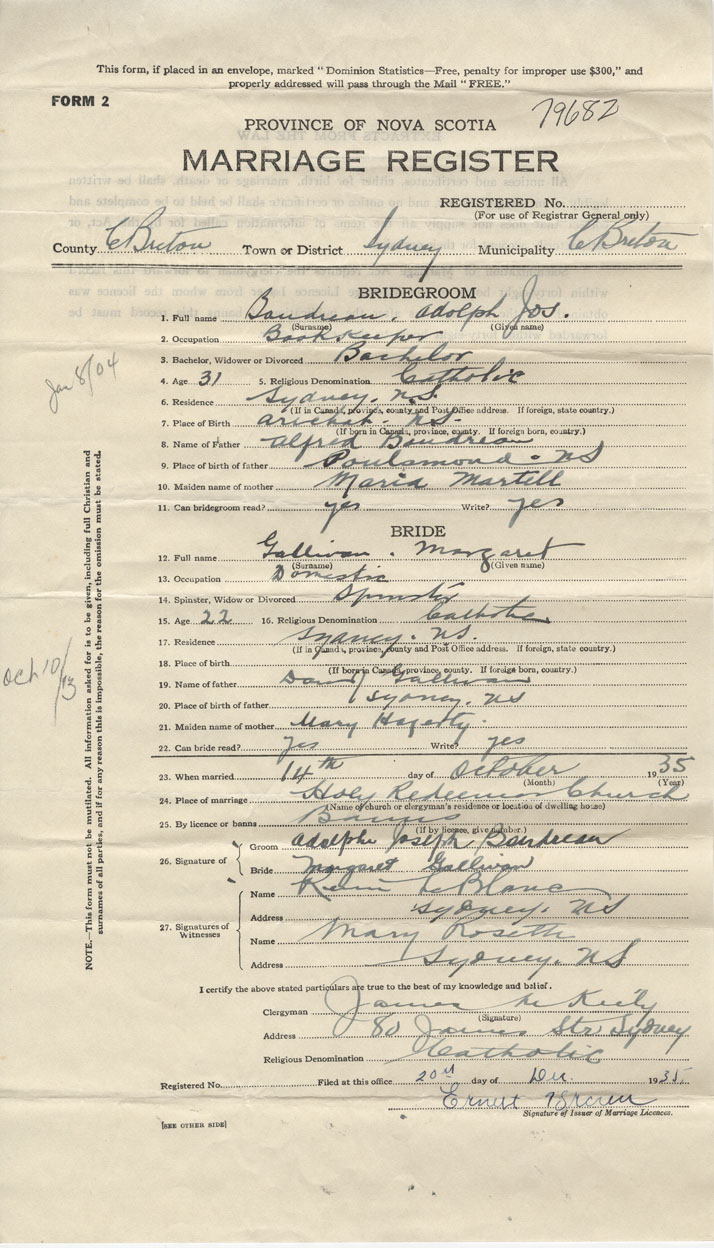 This form, if placed in an envelope, marked "Dominion Statistics—Free, penalty for improper use $300," and
properly addressed will pass through the Mail "FREE."
FORM 2
79682
PROVINCE OF NOVA SCOTIA
MARRIAGE REGISTER
REGISTERED No.
(For use of Registrar General only)
County C Breton Town or District Sydney Municipality C Breton
BRIDEGROOM
1. Full name Boudreau, Adolph Jos.
(Surname) (Given name)
2. Occupation Book Keeper
3. Bachelor, Widower or Divorced Bachelor
Jan 8/04
4. Age 31 5. Religious Denomination Catholic
6. Residence Sydney. N.S.
(If in Canada, province, county and Post Office address. If foreign, state country.)
7. Place of Birth Arichat. N.S.
(If born in Canada, province, county. If foreign born, country.)
8. Name of Father Alfred Boudreau
9. Place of birth of father Poulamond. NS
10. Maiden name of mother Maria Martell
11. Can bridegroom read? yes Write? yes
BRIDE
12. Full name Gallivan. Margaret
(Surname) (Given name)
13. Occupation Domestic
14. Spinster, Widow or Divorced Spinster
15. Age 22 16. Religious Denomination Catholic
17. Residence Sydney. NS.
(If in Canada, province, county and Post Office address. If foreign, state country.)
Oct 10/13
18. Place of birth
(If born in Canada, province, county. If foreign born, country.)
19. Name of father Gallivan
20. Place of birth of father Sydney. NS
21. Maiden name of mother Mary Hagerty.
22. Can bride read? yes Write? yes
23. When married 14th day of October 1935
(Month) (Year)
24. Place of marriage Holy Redeemer Church
(Name of church or clergyman's residence or location of dwelling house)
25. By licence or banns Banns
(If by licence, give number.)
26. Signature of
Groom Adolphe Joseph Boudreau
Bride Margaret Gallivan
27. Signatures of Witnesses
Name LeBlanc
Address Sydney. NS
Name Mary Rosetti
Address Sydney. NS
NOTE.—This form must not be mutilated. All information asked for is to be given, including full Christian and
surnames of all parties, and if for any reason this is impossible, the reason for the omission must be stated.
I certify the above stated particulars are true to the best of my knowledge and belief.
Clergyman James
(Signature)
Address 80 James Str. Sydney
Religious Denomination Catholic
Registered No. Filed at this office 20th day of Dec 1935.
Ernest
Signature of Issuer of Marriage Licences.
[SEE OTHER SIDE]